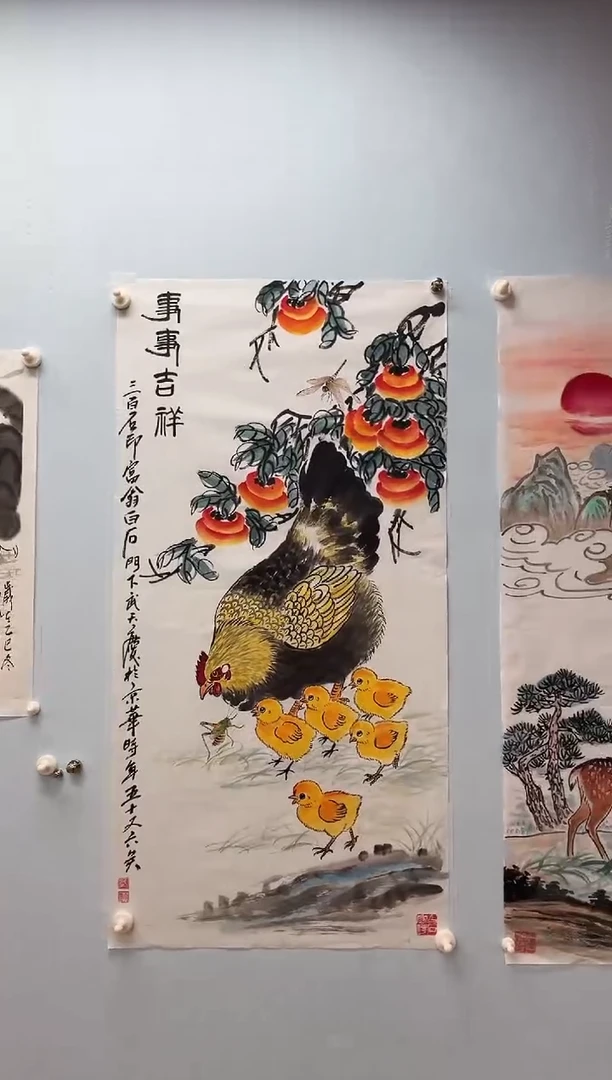 事事吉祥
三百石印富翁白石門下武天慶於京華時年五十又六矣
乙巳冬